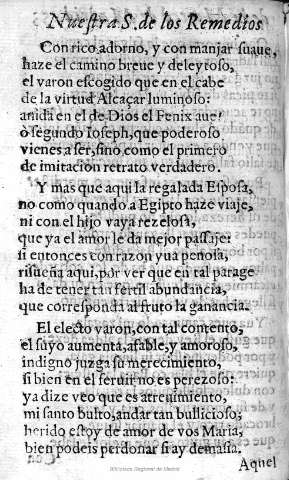 Nuestra S. de los Remedios
Con rico adorno, y con manjar suaue,
haze el camino breue y deleytoso,
el varon escogido que en el cabe
de la virtud Alcaçar luminoso:
anida en el de Dios el Fenix aue!
ò segundo Ioseph, que poderoso
vienes a ser, sino como el primero
de imitacion retrato verdadero.
Y mas que aqui la regalada Esposa,
no como quando a Egipto haze viaje,
ni con el hijo vaya rezelosa,
que ya el amor le da mejor passaje:
si entonces con razon yua penosa,
risueña aqui, por ver que en tal parage
ha de tener tan fertil abundancia,
que corresponda al fruto la ganancia.
El electo varon, con tal contento,
el suyo aumenta, afable, y amoroso,
indigno juzga su merecimiento,
si bien en el seruir no es perezoso:
ya dize veo que es atreuimiento,
mi santo bulto, andar tan bullicioso;
herido estoy de amor de vos Maria,
bien podeis perdonar si ay demasia.
Aquel
Biblioteca Regional de Madrid